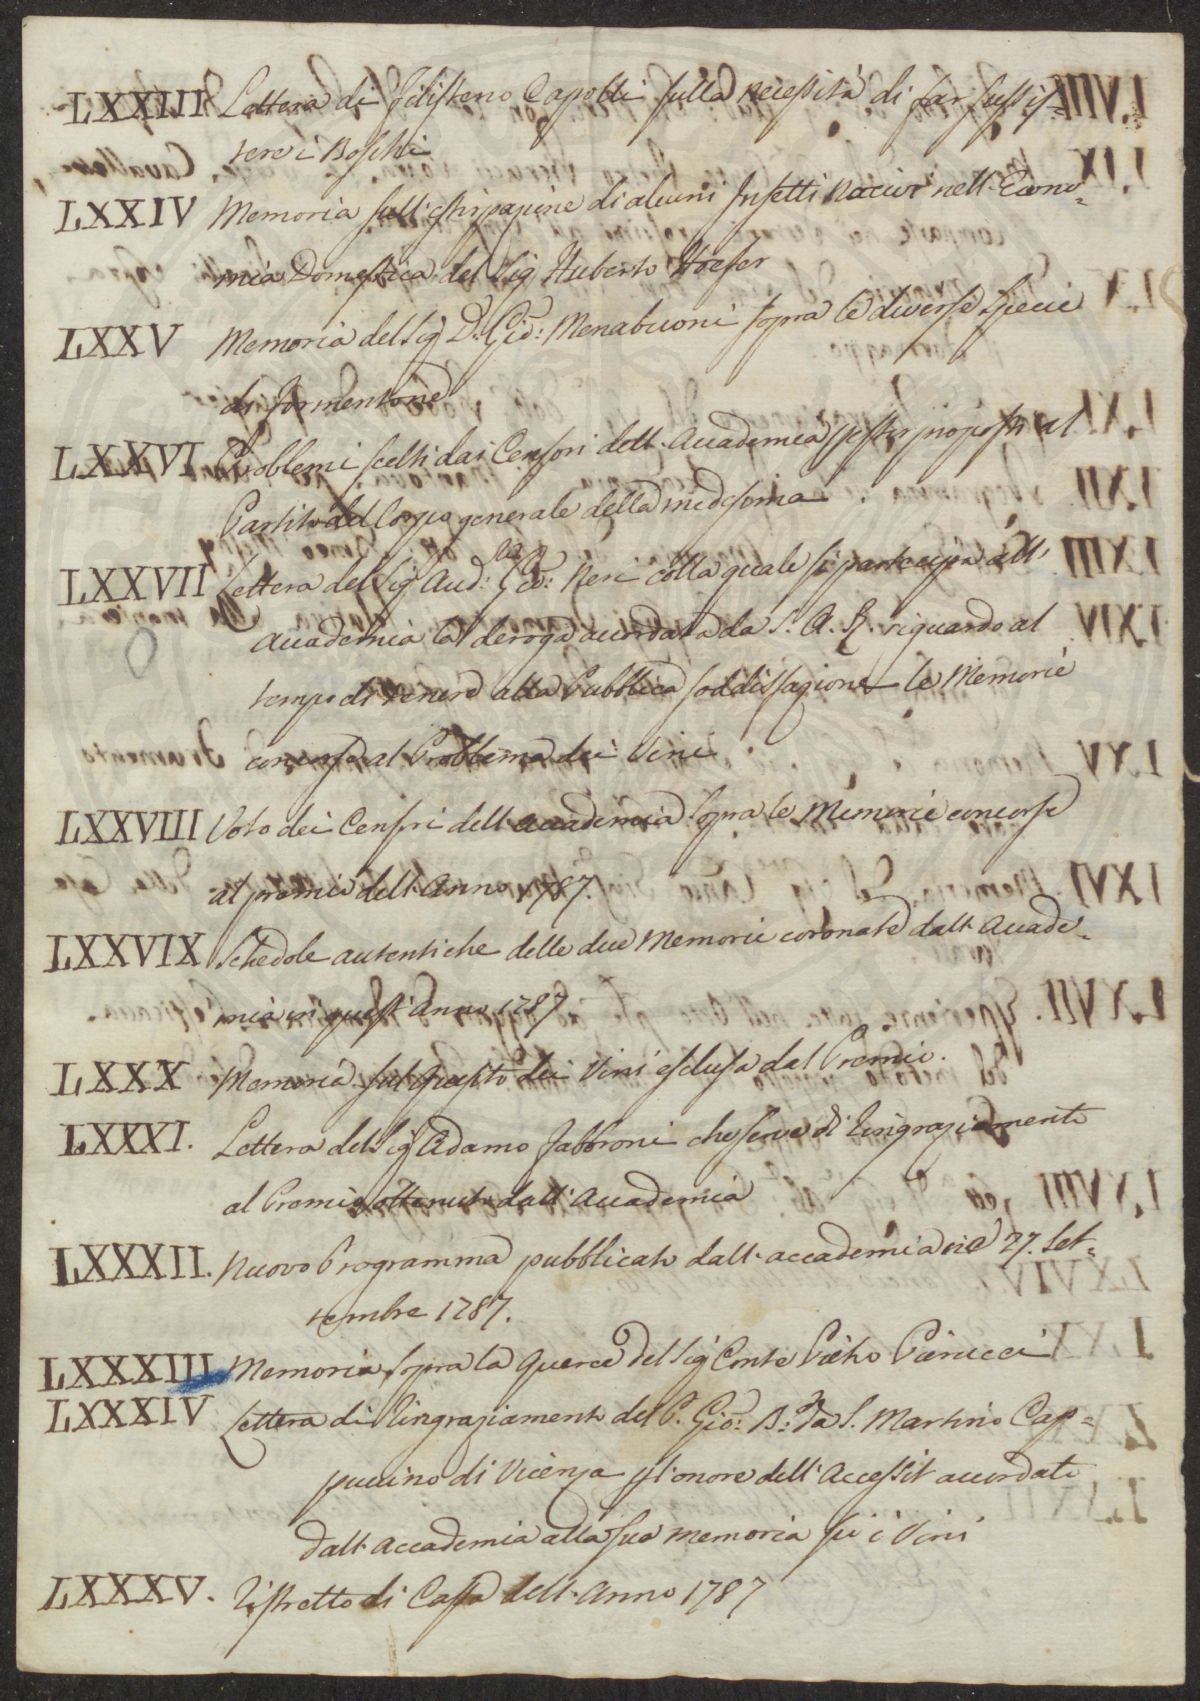 LXXIII Lettera di Filisteno Capolti sulla necessità di far sussis=
tere i Boschi
LXXIV Memoria sull'estirpazione di alcuni Insetti nocivi nell'Econo=
mia Domestica del Sig Huberto Hoefer
LXXV Memoria del Sig D: Gio: Menabuoni sopra le diverse specie
di formentone
LXXVI Problemi scelti dai Censori dell'Accademia proposti al
Partito del Corpo generale della medesima
LXXVII Lettera del Sig Aud: Gio: Neri colla quale si partecipa all'
Accademia la deroga accordata da S. A. R. riguardo al
tempo di tenere alla Pubblica soddisfazione le Memorie
concorse al Problema dei Vini
LXXVIII Voto dei Censori dell'Accademia sopra le Memorie concorse
al premio dell'Anno 1787.
LXXVIX Schedole autentiche delle due Memorie coronate dall'Accade=
mia in quest'Anno 1787
LXXX Memoria sul dei Vini esclusa dal Premio.
LXXXI. Lettera del Sig Adamo Fabbroni che serve di Ringraziamento
al Premio ottenuto dall'Accademia
LXXXII. Nuovo Programma pubblicato dall'accademia ne 27. Set=
tembre 1787.
LXXXIII Memoria sopra la Querce del Sig Conte Pietro Pierucci
LXXXIV Lettera di Ringraziamento del P. Gio: B: da S. Martino Cap=
puccino di Vicenza pl onore dell'Accessit accordato
dall'Accademia alla sua memoria su i Vini
LXXXV. Ristretto di Cassa dell'Anno 1787